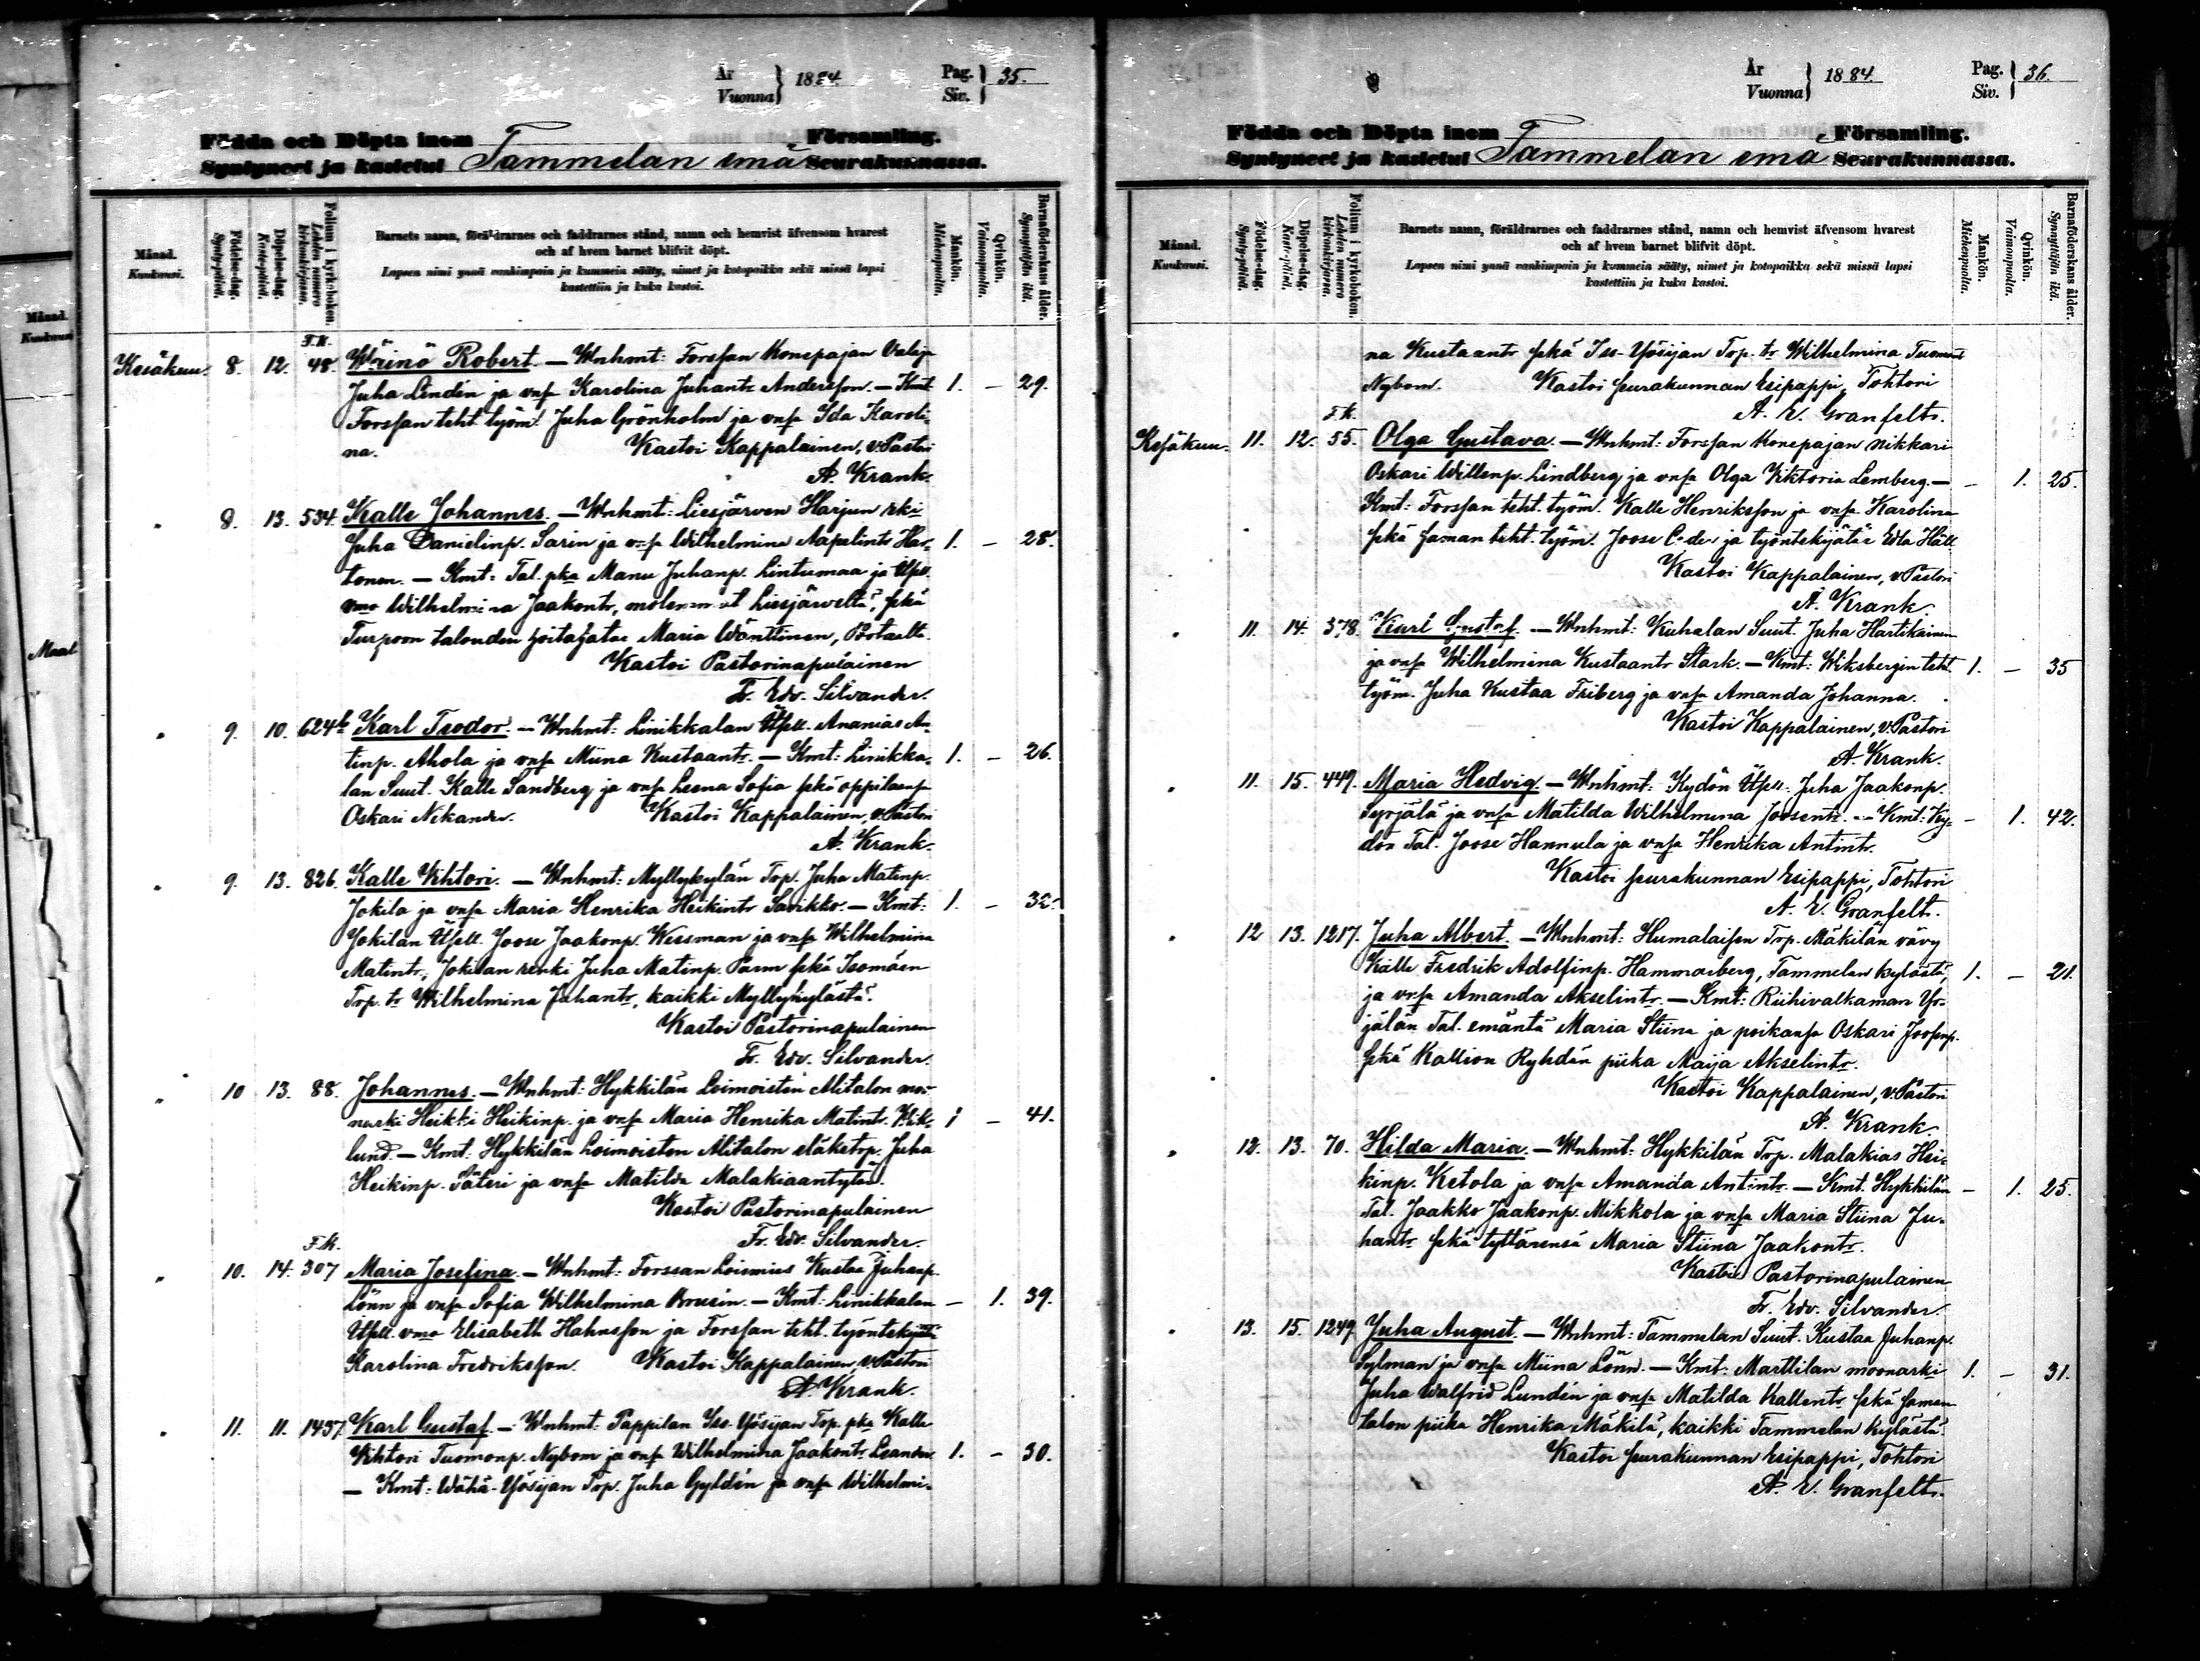 År
Vuonna } 1884.
Pag.
Siv. } 35.
Födda och Döpta inom Församling.
Syntyneet ja kastetut Tammelan emä Seurakunnassa.
Månad.
Kuukausi.
Födelse-dag.
Synty-päivä.
Döpelse-dag.
Kaste-päivä.
Folium i kyrkoboken.
Lehden numero kirkonkirjassa.
Barnets namn, föräldrarnes och faddrarnes stånd, namn och hemvist äfvensom hvarest
och af hvem barnet blifvit döpt.
Lapsen nimi ynnä vanhimpain ja kummein sääty, nimet ja kotopaikka sekä missä lapsi
kastettiin ja kuka kastoi.
Mankön.
Miehenpuolta.
Qvinkön.
Vaimonpuolta.
Barnaföderskans ålder.
Synnyttäjän ikä.
F.k.
Kesäkuu. 8. 12. 48. Wäinö Robert. — Wnhmt: Forssan Konepajan Valaja
Juha Lindén ja vnsa Karolina Juhantr Andersson. — Kmt: 1. — 29.
Forssan teht. työm. Juha Grönholm ja vnsa Ida Karoli-
na. Kastoi Kappalainen, v. Pastori
A. Krank.
" 8. 13. 534. Kalle Johannes. — Wnhmt: Liesjärven Harjun rki
Juha Danielinp. Sarin ja vnsa Wilhelmina Aapelintr Har- 1. — 28.
tonen. — Kmt: Tal. pka Manu Juhanp. Lintumaa ja Itsell.
vmo Wilhelmina Jaakontr, molemmat Liesjärveltä, sekä
Turpoon talouden hoitajatar Maria Wänttinen, Portaalta.
Kastoi Pastorinapulainen
Fr. Edv. Silvander.
" 9. 10. 624b Karl Teodor. — Wnhmt: Linikkalan Itsell. Ananias An-
tinp. Ahola ja vnsa Miina Kustaantr. — Kmt: Linikka- 1. — 26.
lan Suut. Kalle Sandberg ja vnsa Leena Sofia sekä oppilaansa
Oskari Nikander. Kastoi Kappalainen, v. Pastori
A. Krank.
" 9. 13. 826. Kalle Vihtori. — Wnhmt: Myllykylän Trp. Juha Matinp.
Jokila ja vnsa Maria Henrika Heikintr Savikko. — Kmt: 1. — 32.
Jokilan Itsell. Joose Jaakonp. Wessman ja vnsa Wilhelmina
Matintr, Jokilan renki Juha Matinp. Parm sekä Isomäen
Trp. tr Wilhelmina Juhantr, kaikki Myllykylästä.
Kastoi Pastorinapulainen
Fr. Edv. Silvander.
" 10 13. 88. Johannes. — Wnhmt: Hykkilän Loimoisten Alitalon moo-
narki Heikki Heikinp. ja vnsa Maria Henrika Matintr. Wik- 1 — 41.
lund. — Kmt: Hykkilän Loimoisten Alitalon eläketrp. Juha
Heikinp. Päteri ja vnsa Matilda Malakiaantytär.
Kastoi Pastorinapulainen
Fr. Edv. Silvander.
F.k.
" 10. 14. 307 Maria Josefina. — Wnhmt: Forssan Loismies Kustaa Juhanp.
Lönn ja vnsa Sofia Wilhelmina Brusin. — Kmt: Linikkalan — 1. 39.
Itsell. vmo Elisabeth Hahnsson ja Forssan teht. työntekijätär
Karolina Fredriksson. Kastoi Kappalainen, v. Pastori
A. Krank.
" 11. 11. 1457. Karl Gustaf. — Wnhmt: Pappilan Iso-Yösijan Trp. pka Kalle
Vihtori Tuomonp. Nybom ja vnsa Wilhelmina Jaakontr Leander. 1. — 30.
— Kmt: Wähä-Yösijan Trp. Juha Gyldén ja vnsa Wilhelmi-
År
Vuonna } 1884.
Pag.
Siv. } 36.
Födda och Döpta inom Församling.
Syntyneet ja kastetut Tammelan emä Seurakunnassa.
Månad.
Kuukausi.
Födelse-dag.
Synty-päivä.
Döpelse-dag.
Kaste-päivä.
Folium i kyrkoboken.
Lehden numero kirkonkirjassa.
Barnets namn, föräldrarnes och faddrarnes stånd, namn och hemvist äfvensom hvarest
och af hvem barnet blifvit döpt.
Lapsen nimi ynnä vanhimpain ja kummein sääty, nimet ja kotopaikka sekä missä lapsi
kastettiin ja kuka kastoi.
Mankön.
Miehenpuolta.
Qvinkön.
Vaimonpuolta.
Barnaföderskans ålder.
Synnyttäjän ikä.
na Kustaantr sekä Iso-Yösijan Trp. tr Wilhelmina Tuomontr
Nybom. Kastoi seurakunnan Esipappi, Tohtori
A. E. Granfelt.
F.k.
Kesäkuu. 11. 12. 55. Olga Gustava. — Wnhmt: Forssan Konepajan nikkari
Oskari Willenp. Lindberg ja vnsa Olga Viktoria Lemberg. — — 1. 25.
Kmt: Forssan teht. työm. Kalle Henriksson ja vnsa Karolina
sekä saman teht. työm. Joose Ceder ja työntekijätär Edla Häll.
Kastoi Kappalainen, v. Pastori
A. Krank.
" 11. 14. 378. Karl Gustaf. — Wnhmt: Kuhalan Suut. Juha Hartikainen
ja vnsa Wilhelmina Kustaantr Stark. — Kmt: Wiksbergin teht. 1. — 35
työm. Juha Kustaa Friberg ja vnsa Amanda Johanna.
Kastoi Kappalainen, v. Pastori
A. Krank.
" 11. 15. 449. Maria Hedvig. — Wnhmt: Kydön Itsell. Juha Jaakonp.
Syrjälä ja vnsa Matilda Wilhelmina Joosentr. — Kmt: Ky- — 1. 42.
dön Tal. Joose Hannula ja vnsa Henrika Antintr.
Kastoi seurakunnan Esipappi, Tohtori
A. E. Granfelt.
" 12 13. 1217. Juha Albert. — Wnhmt: Humalaisen Trp. Mäkilän vävy
Kalle Fredrik Adolfinp. Hammarberg, Tammelan kylästä, 1. — 21.
ja vnsa Amanda Akselintr. — Kmt: Riihivalkaman Yr-
jälän Tal. emäntä Maria Stiina ja poikansa Oskari Joosenp.
sekä Kallion Ryhdän piika Maija Akselintr.
Kastoi Kappalainen, v. Pastori
A. Krank.
" 12. 13. 70. Hilda Maria. — Wnhmt: Hykkilän Trp. Malakias Hei-
kinp. Ketola ja vnsa Amanda Antintr. — Kmt. Hykkilän — 1. 25.
Tal. Jaakko Jaakonp. Mikkola ja vnsa Maria Stiina Ju-
hantr sekä tyttärensä Maria Stiina Jaakontr.
Kastoi Pastorinapulainen
Fr. Edv. Silvander.
" 13. 15. 1249. Juha August. — Wnhmt: Tammelan Suut. Kustaa Juhanp.
Sylman ja vnsa Miina Lönn. — Kmt: Marttilan moonarki 1. — 31.
Juha Walfrid Lundén ja vnsa Matilda Kallentr sekä saman
talon piika Henrika Mäkilä, kaikki Tammelan kylästä.
Kastoi seurakunnan Esipappi, Tohtori
A. E. Granfelt.